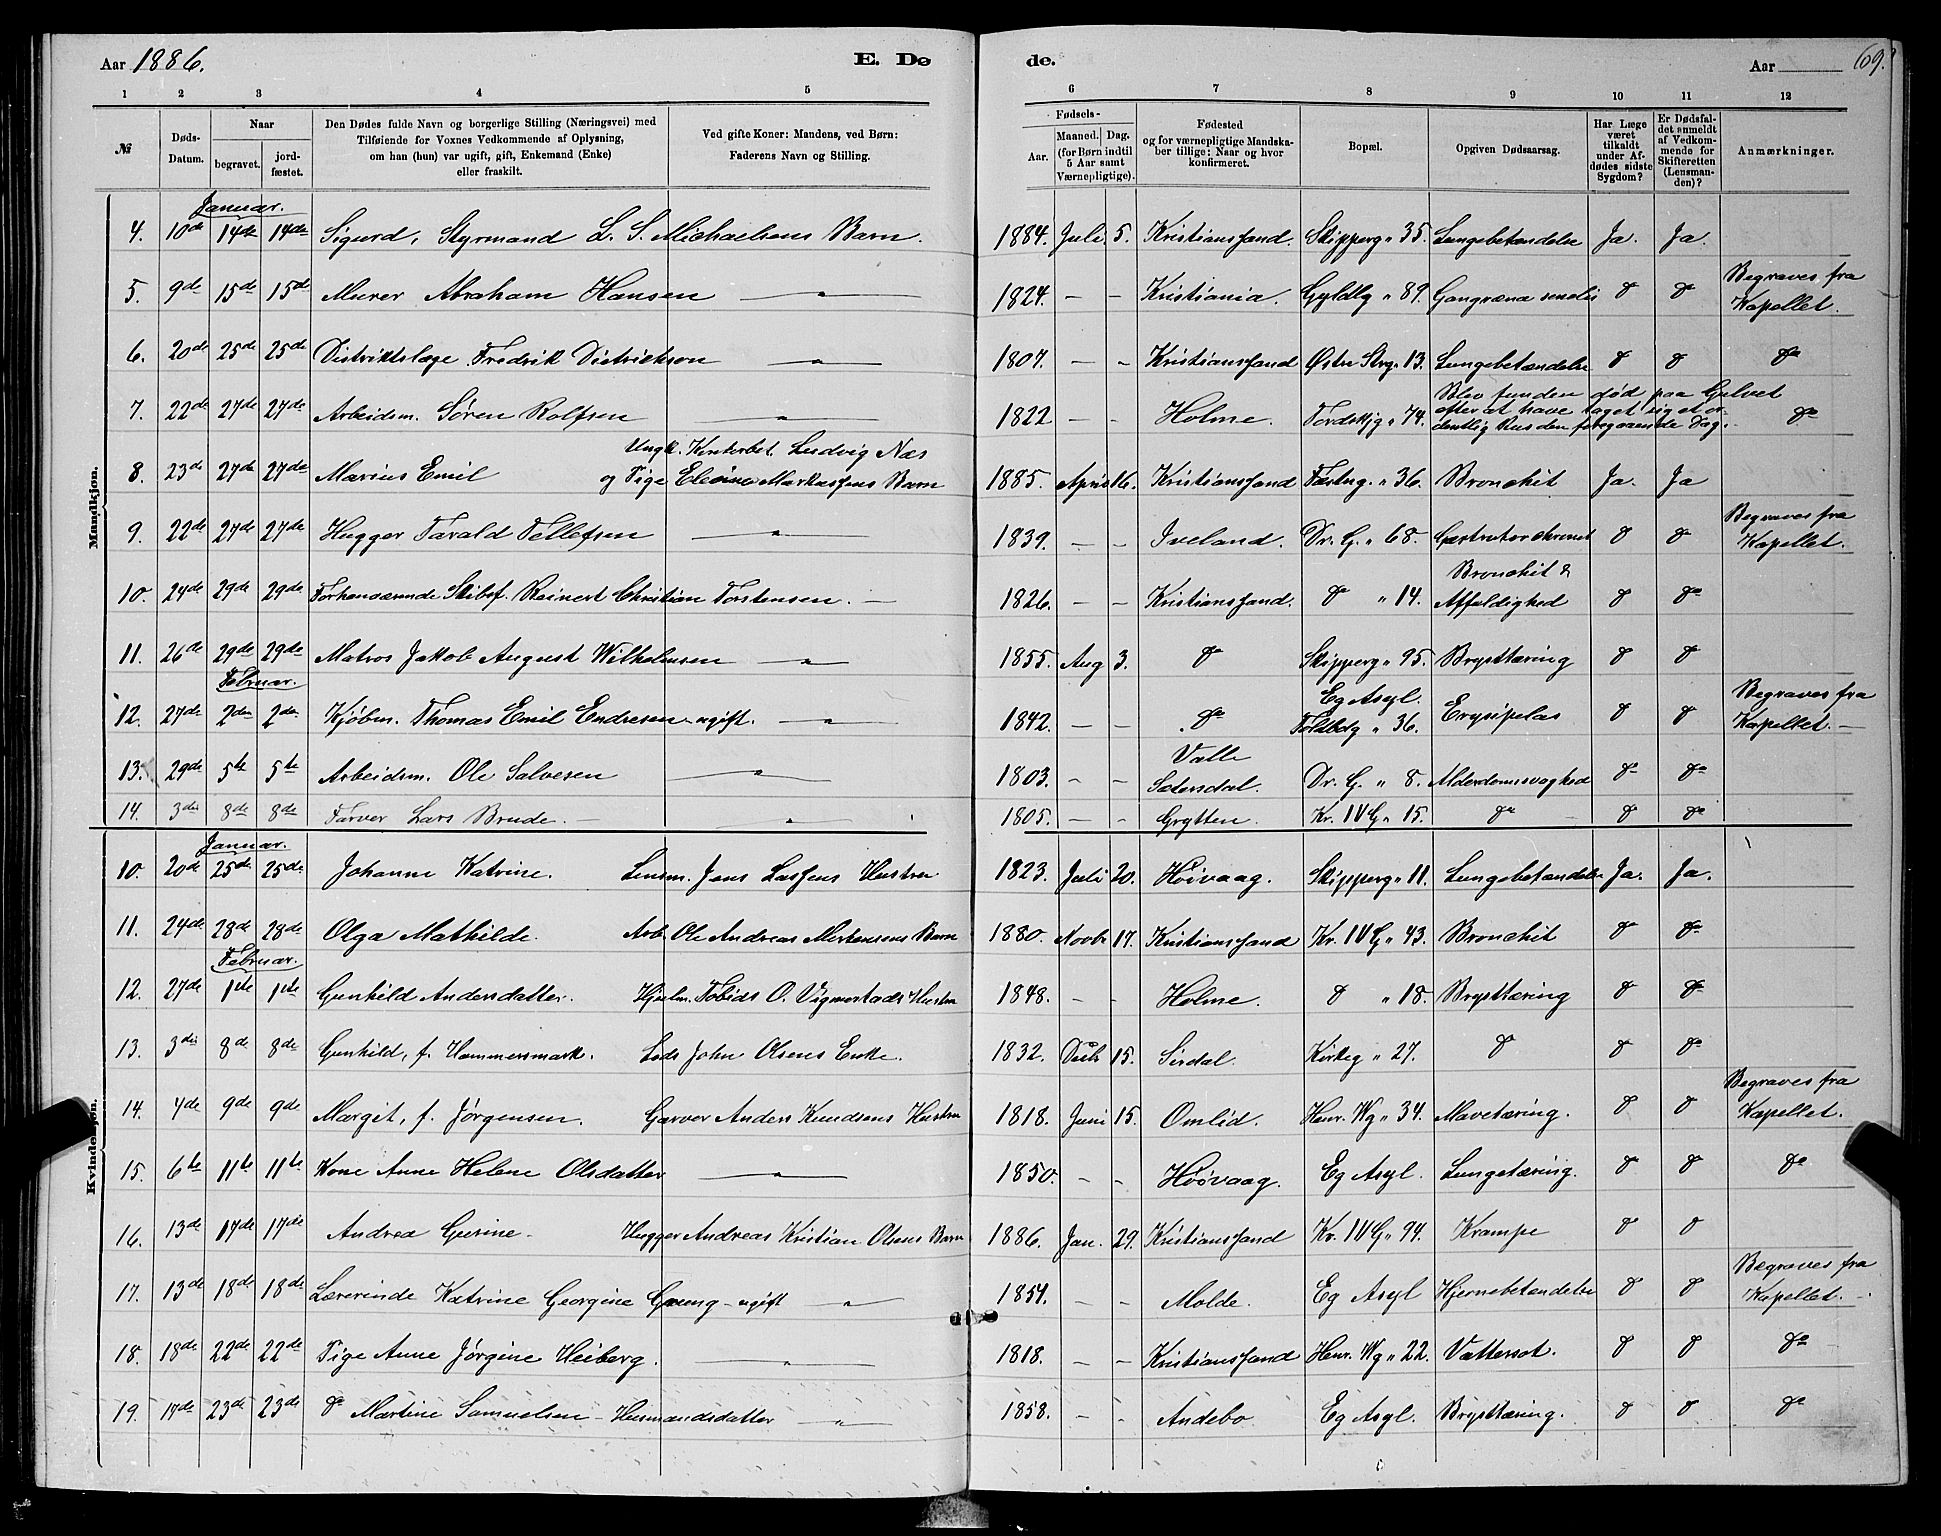 Aar 1886. E. Dø
de. Aar 69.
1 2 3 4 5 6 7 8 9 10 11 12
№ Døds-Datum. Naar begravet. jordfæstet. Den Dødes fulde Navn og borgerlige Stilling (Næringsvei) med Tilføiende for Voxnes Vedkommende af Oplysning, om han (hun) var ugift, gift, Enkemand (Enke) eller fraskilt. Ved gifte Koner: Mandens, ved Børn: Faderens Navn og Stilling. Fødsels- Aar. Maaned. Dag. (for Børn indtil 5 Aar samt Værnepligtige). Fødested og for værnepligtige Mandskaber tillige: Naar og hvor konfirmeret. Bopæl. Opgiven Dødsaarsag. Har Læge været tilkaldt under Afdødes sidste Sygdom? Er Dødsfaldet anmeldt af Vedkommende for Skifteretten (Lensmanden)? Anmærkninger.
Mandkjøn.
Januar.
4. 10de 14de 14de Sigurd, Styrmand L. S. Michaelsens Barn. 1884. Juli 5. Kristianssand. Skipperg " 35. Lungebetændelse Ja. Ja.
5. 9de 15de 15de Murer Abraham Hansen — " — 1824. — — Kristiania. Gyldlg " 89. Gangræna senilis do do Begraves fra Kapellet.
6. 20de 25de 25de Distriktslæge Fredrik Districhson — " — 1807. — — Kristianssand Østre Strg " 13. Lungebetændelse do do do
7. 22de 27de 27de Arbeidsm. Søren Rolfsen — " — 1822 — — Holme. Tordskjg " 74. Blev funden død paa Gulvet efter at have taget sig et ordentlig Rus den foregaaende Dag. do
8. 23de 27de 27de Marius Emil Ungk. Kontorbet. Ludvig Næs og Pige Eleonora Markussens Barn 1885. April 16. Kristianssand Fæstng. " 36. Bronchit Ja. Ja
9. 22de 27de 27de Hugger Tarald Tellefsen — " — 1839. — — Iveland. Dr. G. " 68. do do Begraves fra Kapellet.
10. 24de 29de 29de Forhenværende Skibsf. Reinert Christian Torstensen. — 1826. — — Kristianssand. do " 14. Bronchit & Affældighed do do
11. 26de 29de 29de Matros Jakob August Wilhelmsen — " — 1855. Aug 3. do Skipperg " 95. Brysttæring do do
Februar.
12. 27de 2den 2den Kjøbm. Thomas Emil Endresen - ugift. — " — 1842. — — do Eg Asyl. Toldborg " 36. Erysipelas do do Begraves fra Kapellet. —
13. 29de 5te 5te Arbeidsm. Ole Salvesen — " — 1803. — — Valle Sætersdal. Dr. G. " 8. Alderdomssvaghed do do
14. 3die 8de 8de Farver Lars Brude. — " — 1805. — — Grytten. Kr. IV G " 15. do do do
Kvindekjøn.
Januar.
10. 20de 25de 25de Johanne Katrine. Lensm. Jens Lassens Hustru 1823. Juli 20. Høivaag. Skipperg " 11. Lungebetændelse Ja. Ja.
11. 24de 28de 28de Olga Mathilde. Arb. Ole Andreas Mortensens Barn 1880. Novbr 17. Kristianssand Kr. IV G " 43. Bronchit do do
Februar.
12. 27de 1ste 1ste Gunhild Andersdatter. Hjulm. Tobias O. Vigmostads Hustru 1848. — — Holme. do " 18. Brysttæring do do
13. 3die 8de 8de Gunhild, f. Hammersmark. Lods John Olsens Enke. 1832. Decbr 15. Sirdal. Kirkeg " 27. do do do
14. 7de 9de 9de Margit, f. Jørgensen. Garver Anders Knudsens Hustru 1818. Juni 15. Omlid. Henr. Wg " 34. Mavetæring. do do Begraves fra Kapellet.
15. 6te 11te 11te Kone Anne Helene Olsdatter — " — 1850. — — Høivaag. Eg Asyl. Lungetæring. do do do
16. 13de 17de 17de Andrea Gurine. Hugger Andreas Kristian Olsens Barn 1886. Jan. 29. Kristianssand Kr. IV G " 94. Krampe do do
17. 13de 18de 18de Lærerinde Katrine Georgine Grung - ugift — " — 1854. — — Molde. Eg Asyl Hjernebetændelse do do Begraves fra Kapellet. —
18. 18de 22de 22de Pige Anne Jørgine Heiberg. — " — 1818. — — Kristianssand Henr. Wg " 22. Vattersot. do do do
19. 17de 23de 23de do Martine Samuelsen - Husmandsdatter — " — 1858. — — Andebo Eg Asyl. Brysttæring. do do do